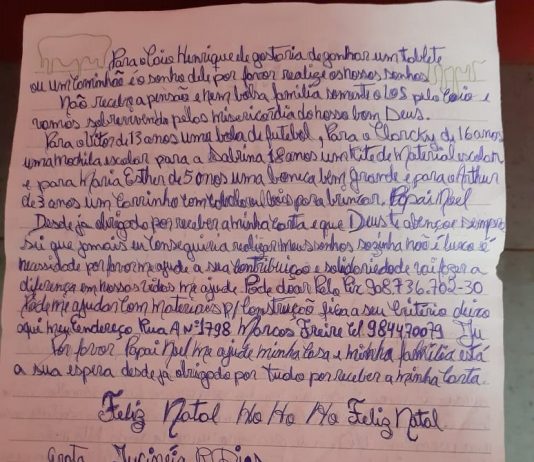 Para o Caio Henrique ele gostaria de ganhar um tablete
ou um Caminhão é o sonho dele por favor realize os nossos sonhos
Não recebo a pensão e nem bolsa família somente o LOS pelo Caio e
vamos sobrevivendo pelas misericórdia do nosso bom Deus.
Para o Vitor de 13 anos uma bola de futebol, Para o Clarcky de 16 anos
uma mochila escolar para a Sabrina 18 anos um Kite de Material escolar
e para Maria Esther de 5 anos uma boneca bem grande e para o Arthur
de 3 anos um Carrinho com para brincar. Papai Noel
Desde já obrigado por receber a minha Carta e que Deus te abençoe sempre
sei que jamais eu Conseguiria realizar meus sonhos sozinha não é luxo é
necessidade por favor me ajude a sua Contribuição e solidariedade vai fazer a
diferença em nossas vidas me ajude. Pode doar Pelo Pix 908736.702-30
Pode me ajudar Com materiais p/ Construção fica a seu Critério deixo
aqui meu Endereço Rua A Nº 1798 Marcos Freire tel 984470079 Ju
Por favor Papai Noel me ajude minha Casa e minha família está
a sua espera desde já obrigado por tudo por receber a minha Carta.
Feliz Natal Ho Ho Ho Feliz Natal